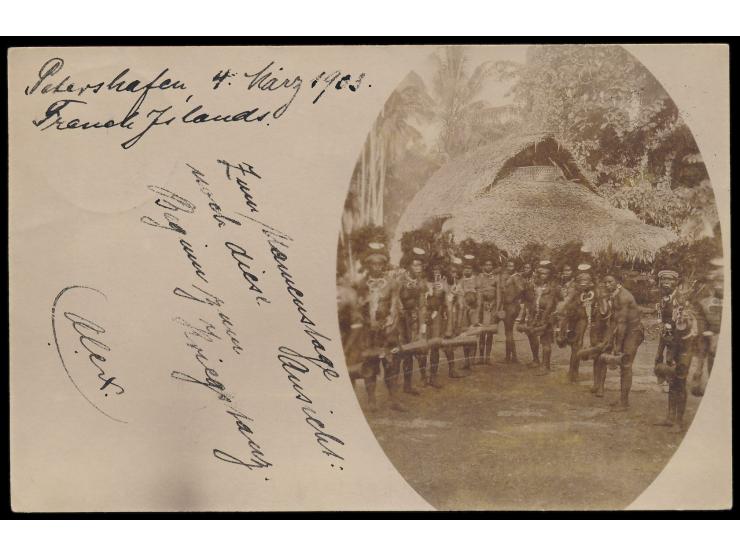 Petershafen, 4. März 1903.
French Islands.
Zum Namenstage
noch diese Ansicht:
Beginn zum
Kriegstanz.
Alex.